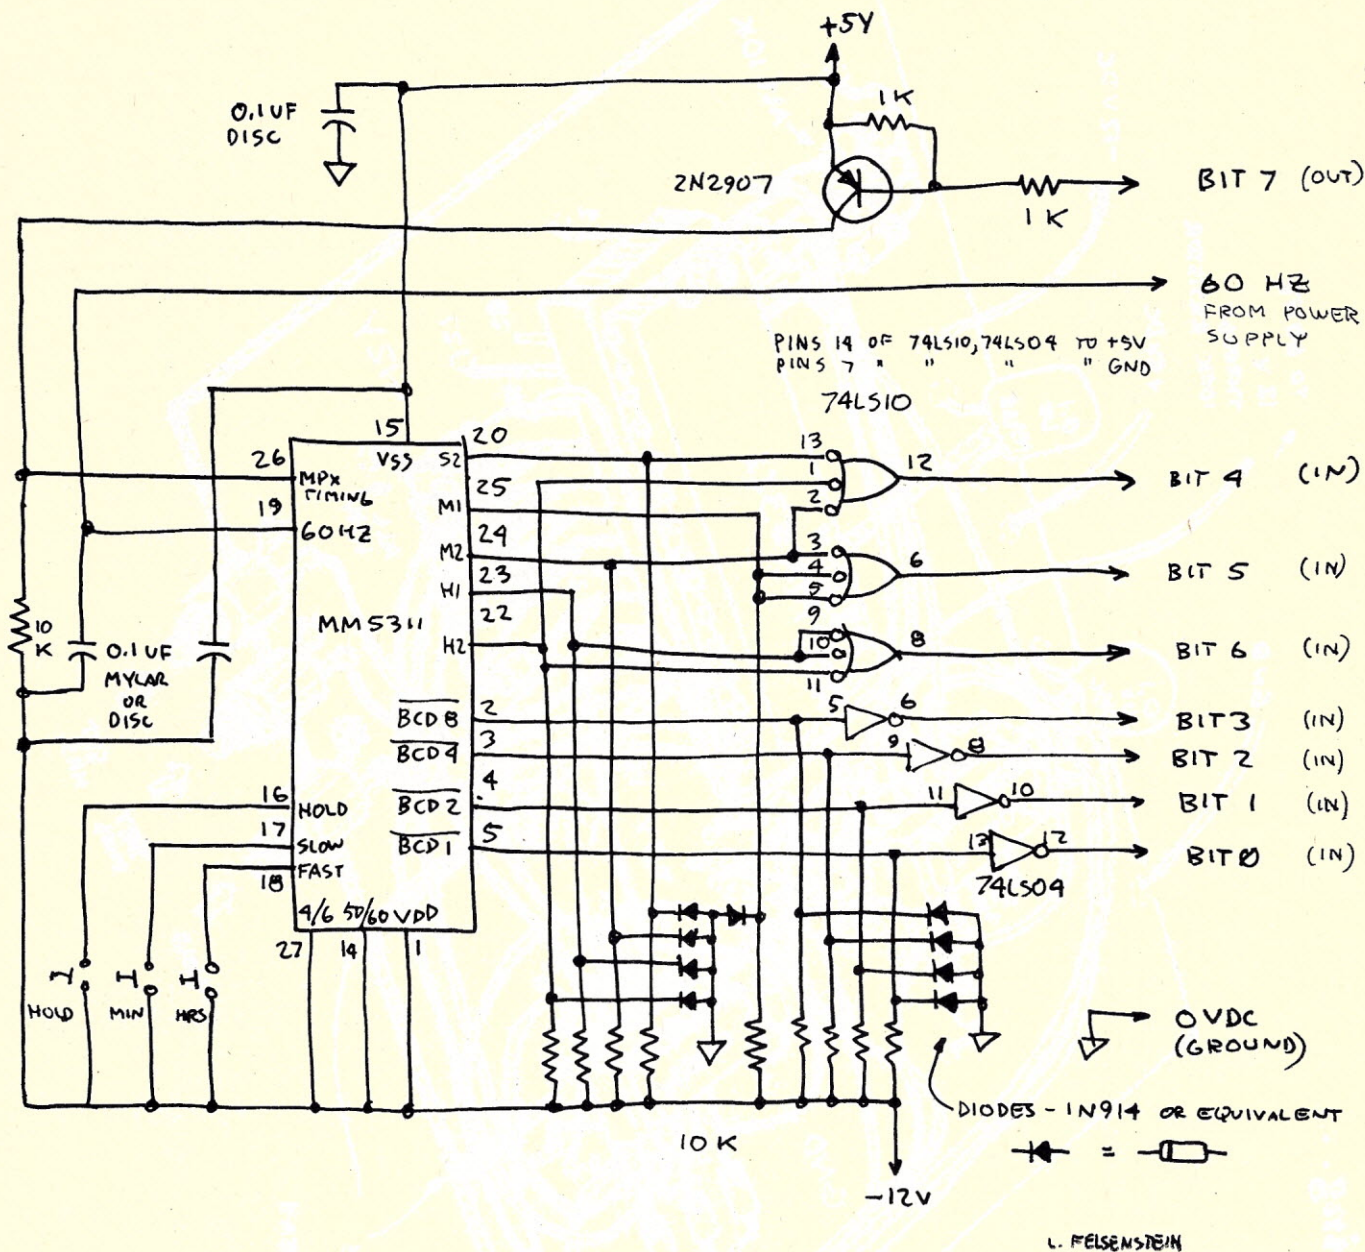 +5V
0.1UF
DISC
1K
2N2907
1K
BIT 7 (OUT)
60 HZ
FROM POWER
SUPPLY
PINS 14 OF 74LS10, 74LS04 TO +5V
PINS 7 " " " " GND
74LS10
15
VSS
20
S2
26
MPX
TIMING
25
M1
19
60HZ
24
M2
23
H1
22
H2
MM5311
13
1
2
12
BIT 4 (IN)
3
4
5
6
BIT 5 (IN)
9
10
11
8
BIT 6 (IN)
10
K
0.1UF
MYLAR
OR
DISC
BCD8
2
5
6
BIT3 (IN)
BCD4
3
9
8
BIT 2 (IN)
BCD2
4
11
10
BIT 1 (IN)
BCD1
5
13
12
BIT0 (IN)
74LS04
16
HOLD
17
SLOW
18
FAST
4/6 50/60 VDD
27
14
1
HOLD
MIN
HRS
0VDC
(GROUND)
DIODES - 1N914 OR EQUIVALENT
=
10K
-12V
L. FELSENSTEIN